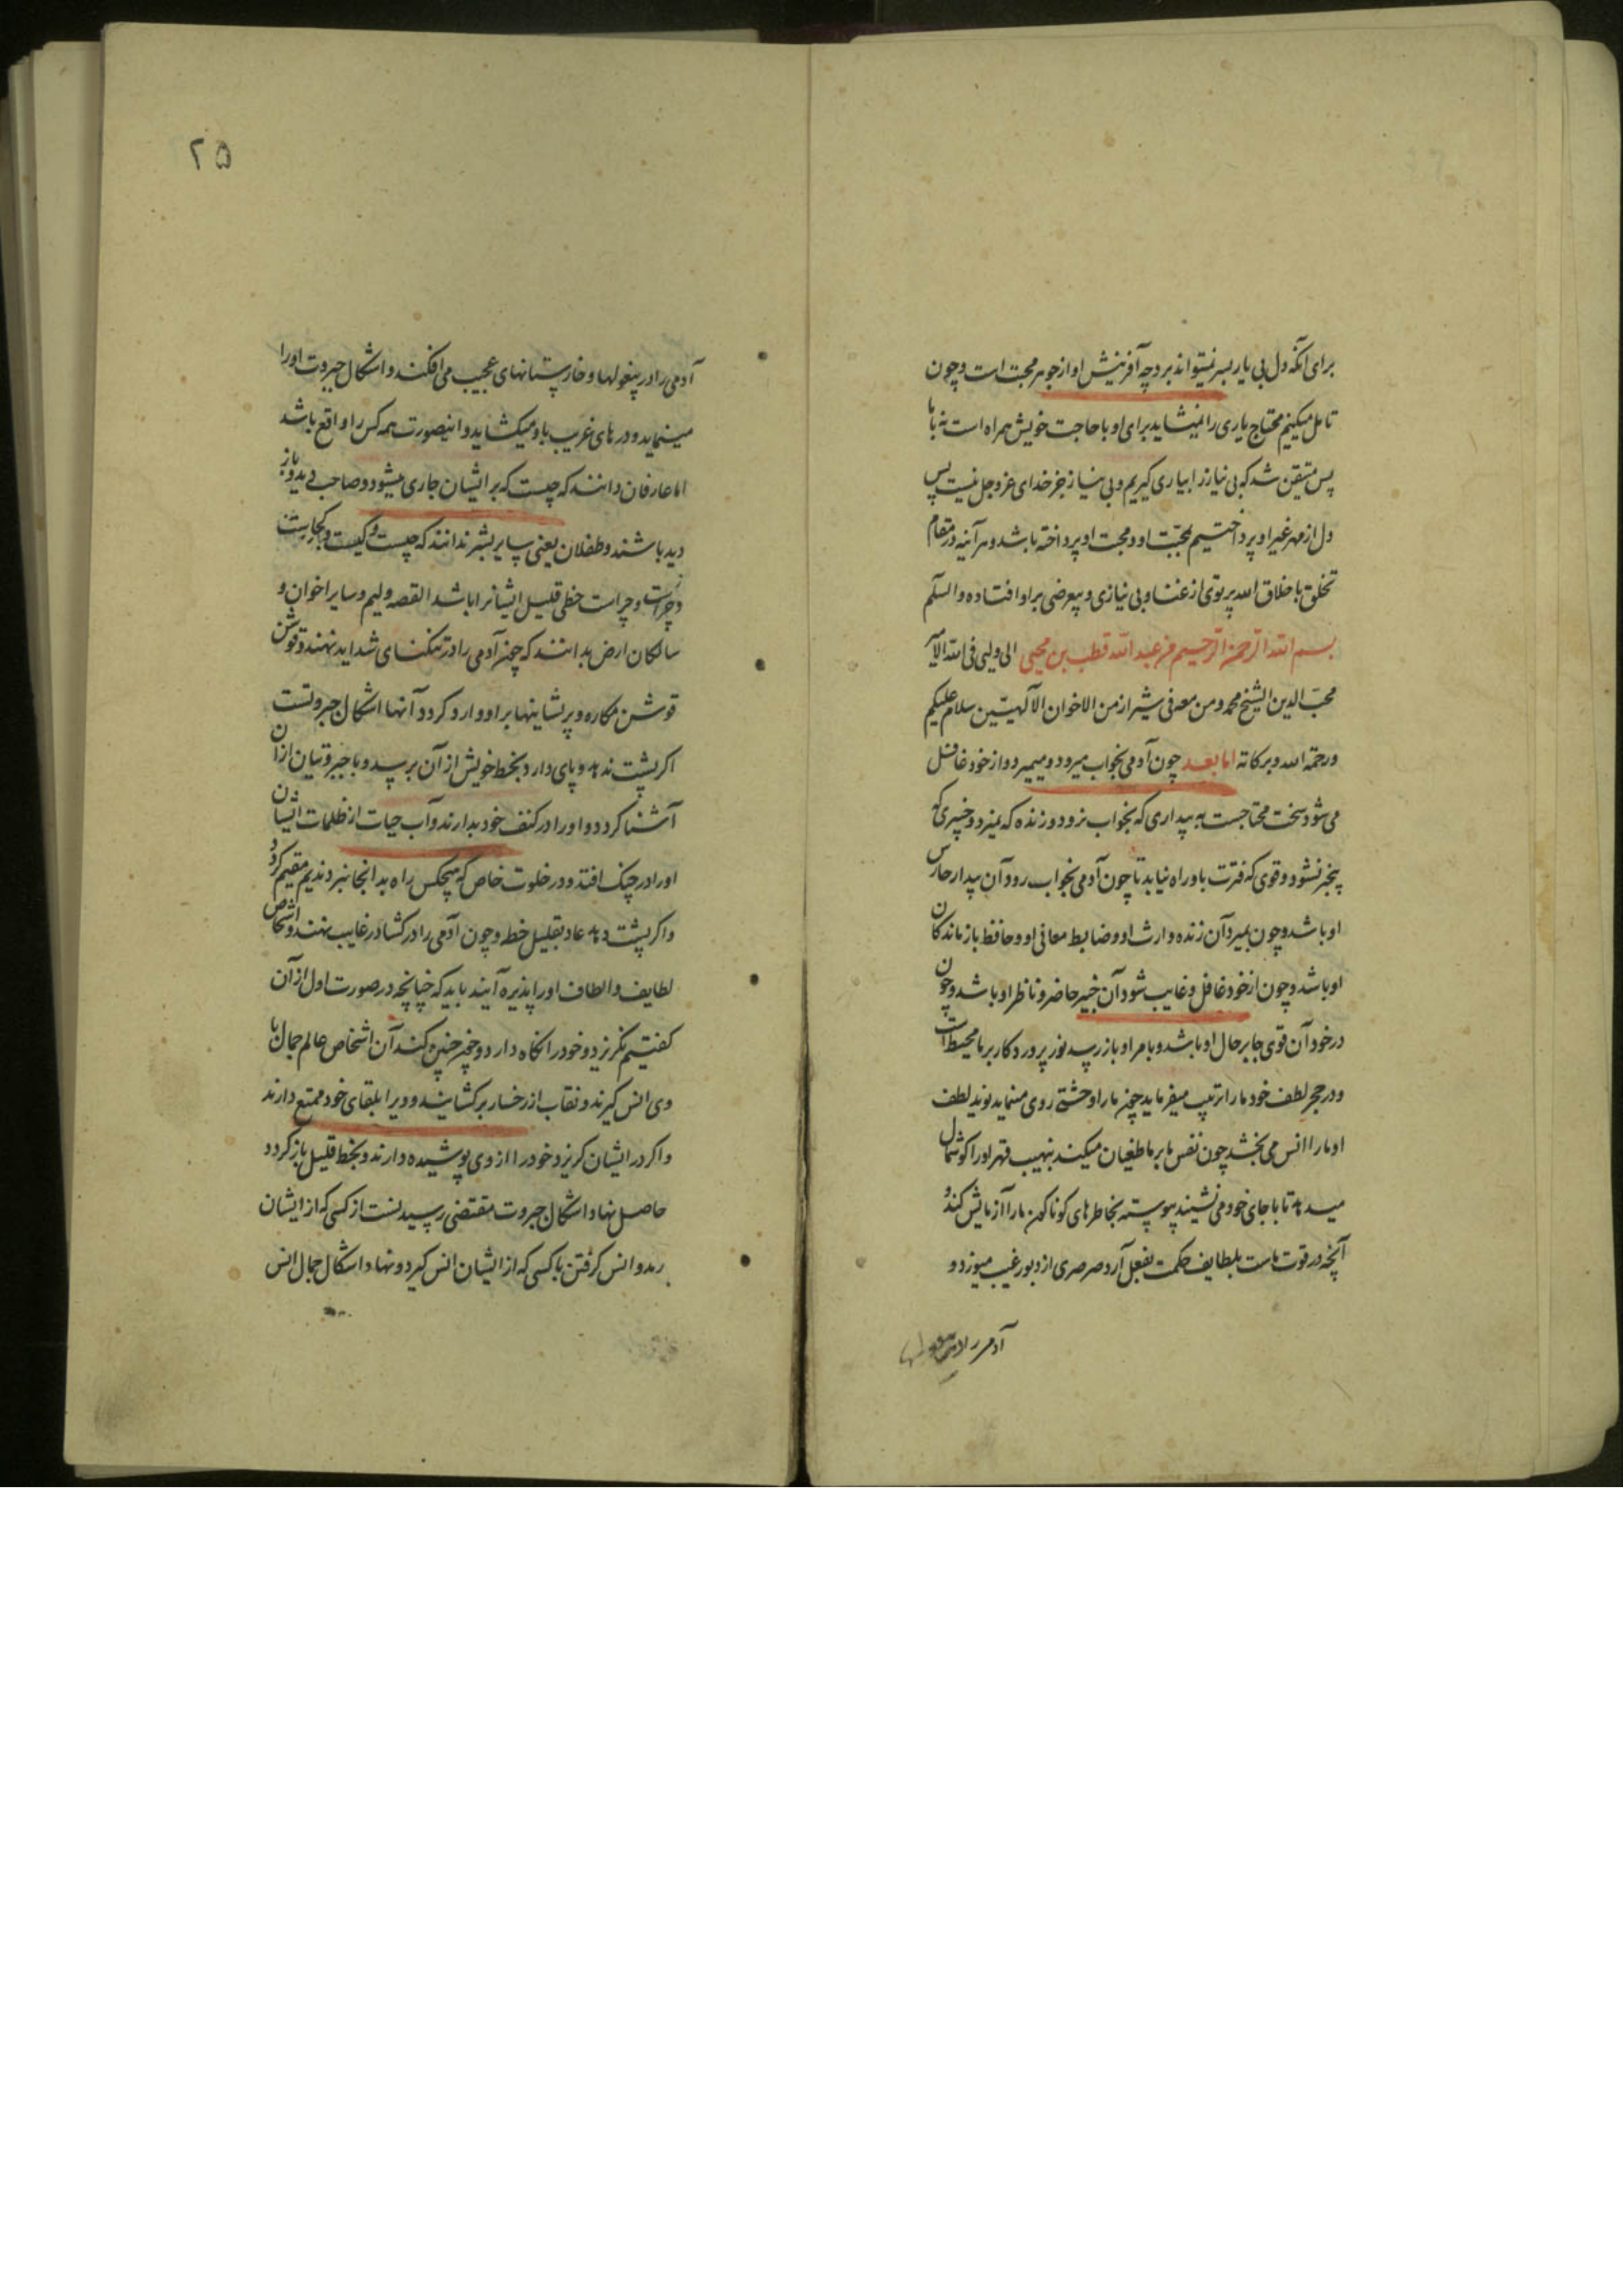 برای آنکه دل بی یار بسر نمیتواند برد چه آفرینش او از جوهر محبت است و چون
تامل میکنیم محتاج یاری را نمیشاید برای او با حاجت خویش همراه است نه با ما
پس متیقن شد که بی نیاز را بیاری گیریم و بی نیاز جز خدای عز و جل نیست پس
دل از مهر غیر او پرداختیم بمحبت او و محبت او پرداخته باشد و هر آینه در مقام
تخلق باخلاق الله پرتوی از غنا و بی نیازی و بیعرضی بر او افتاده والسلم
بسم الله الرحمن الرحیم من عبد الله قطب بن محیی الی ولیی فی الله الامیر
محب الدین الشیخ محمد و من معه فی شیراز من الاخوان الالهیین سلام علیکم
ورحمة الله وبرکاته اما بعد چون آدمی بخواب میرود و میمیرد و از خود غافل
می شود سخت محتاجست به بیداری که بخواب نرود و زنده که نمیرد و خبیری که
بیخبر نشود و قوی که فترت باو راه نیابد تا چون آدمی بخواب رود آن بیدار حارس
او باشد و چون بمیرد آن زنده وارث او و ضابط معانی او و حافظ بازماندگان
او باشد و چون از خود غافل و غایب شود آن خبیر حاضر و ناظر او باشد و چون
در خود آن قوی جابر حال او باشد و بامر او باز رسد نور پروردگار بر ما محیط است
و در حجر لطف خود ما را تربیت میفرماید چون ما را وحشتی روی مینماید نوید لطف
او ما را انس می بخشد چون نفس ما بر ما طغیان میکند بنهیب قهر او را گوشمال
میدهد تا باجای خود می نشیند پیوسته بخاطرهای گوناگون ما را آزمایش کند و
آنچه در قوت ماست بلطایف حکمت بفعل آرد صرصری از دبور غیب میوزد و
آدمی را در بیغولها
۲۵
آدمی را در بیغولها و خارستانهای عجیب می افکند و اشکال جبروت او را
مینماید و درهای غریب باو میکشاید و اینصورت همه کس را واقع باشد
اما عارفان دانند که چیست که بر ایشان جاری میشود و صاحب دید و باز
دید باشند و طفلان یعنی سایر بشر ندانند که چیست و کیست و کجاست
و چراست و چرات حظی قلیل ایشانرا باشد القصه ولیم و سایر اخوان و
سالکان ارض بدانند که چون آدمی را در تنکنای شداید نهند و قوشن
قوشن مکاره و پریشانیها بر او وارد کردد آنها اشکال جبروتست
اکر پشت ندهد و پای دارد بخط خویش از آن برسد و با جبروتیان از آن
آشنا کردد و او را در کنف خود بدارند و آب حیات از ظلمات ایشان
او را در چنک افتد و در خلوت خاص که هیچکس راه بدانجا نبرد ندیم مقیم کردد
و اکر پشت دهد عاد بقلیل حظ و چون آدمی را در کشاد رغایب نهند و اشخاص
لطایف و الطاف او را پذیره آیند باید که چنانچه در صورت اول از آن
گفتیم نکریزد و خود را نکاه دارد و چون چنین کند آن اشخاص عالم جمال با
وی انس گیرند و نقاب از رخسار برکشایند و ویرا بلقای خود ممتع دارند
و اکر در ایشان کریزد خود را از وی پوشیده دارند و بحظ قلیل باز کردد
حاصل نهاد اشکال جبروت مقتضی رسیدنست از کسی که از ایشان
رمد و انس گرفتن با کسی که از ایشان انس گیرد و نهاد اشکال جمال انس